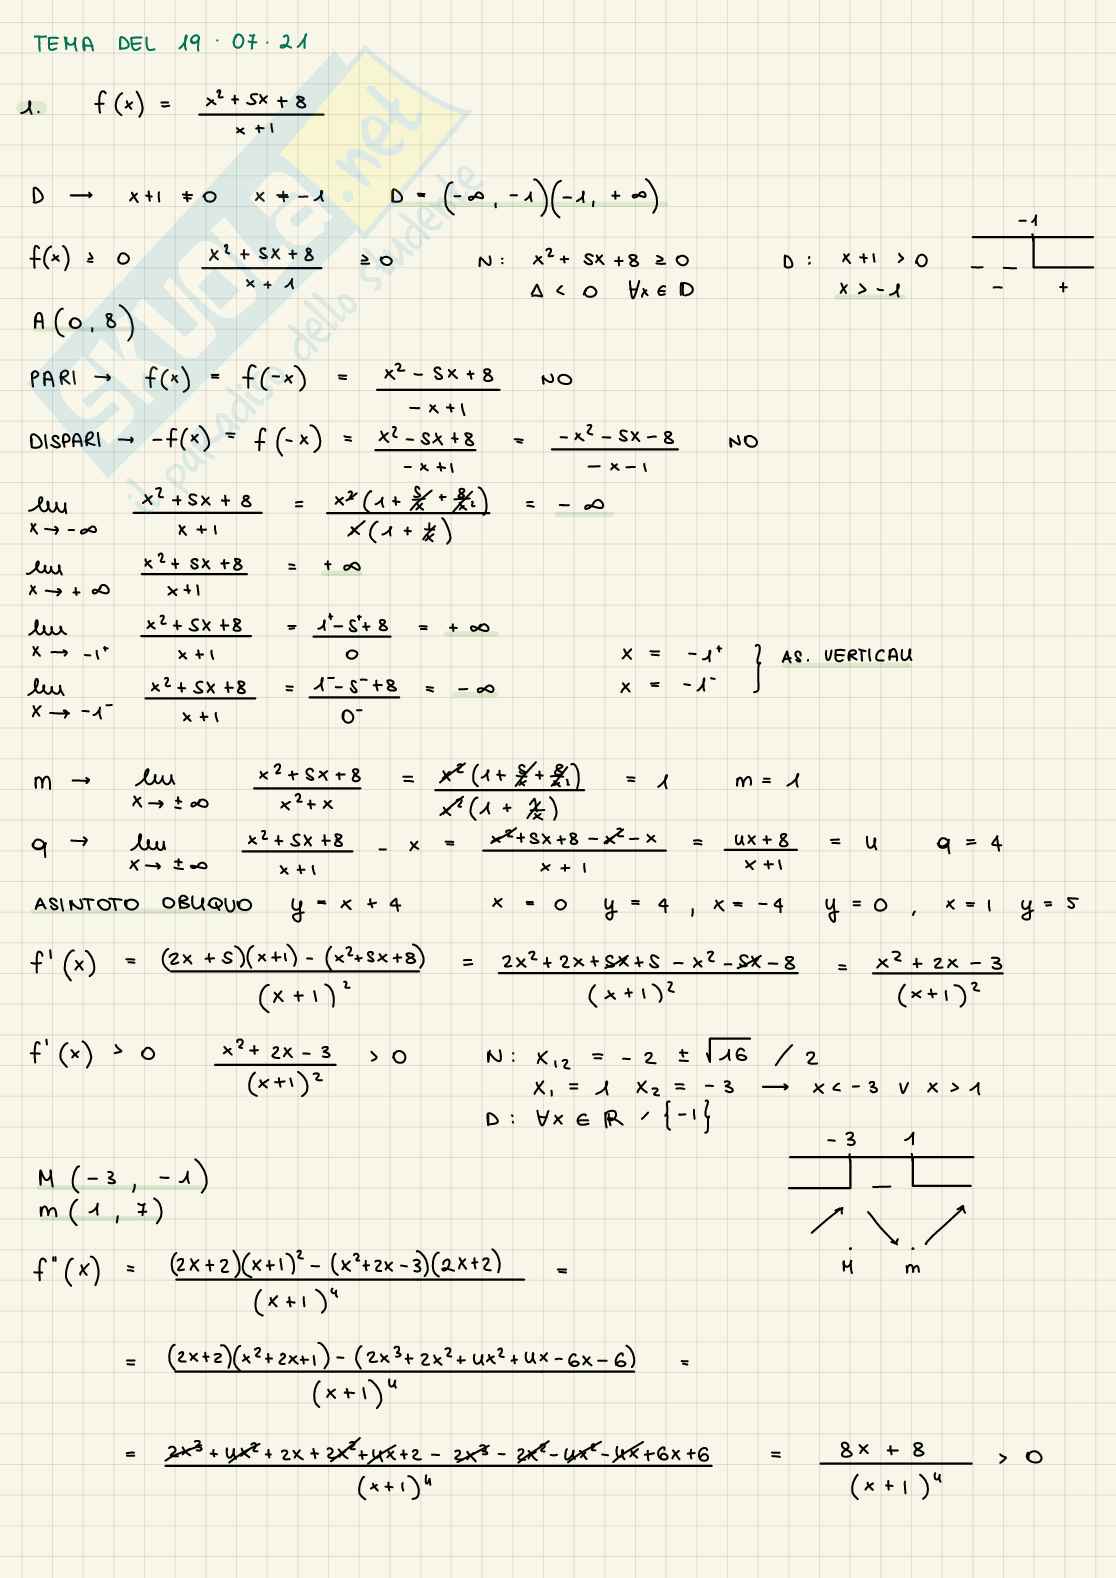 TEMA DEL 19·07·21
1. f(x) = (x² + 5x + 8)/(x + 1)
D → x+1 ≠ 0 x ≠ -1 D = (-∞, -1)(-1, +∞)
-1
f(x) ≥ 0 (x² + 5x + 8)/(x + 1) ≥ 0 N: x² + 5x + 8 ≥ 0 D: x+1 > 0
Δ < 0 ∀x ∈ D x > -1 - +
A (0, 8)
PARI → f(x) = f(-x) = (x² - 5x + 8)/(-x + 1) NO
DISPARI → -f(x) = f(-x) = (x² - 5x + 8)/(-x + 1) = (-x² - 5x - 8)/(-x - 1) NO
lim x → -∞ (x² + 5x + 8)/(x + 1) = x²(1 + 5/x + 8/x²)/x(1 + 1/x) = -∞
lim x → +∞ (x² + 5x + 8)/(x+1) = +∞
lim x → -1⁺ (x² + 5x + 8)/(x + 1) = (1⁺ - 5⁺ + 8)/0 = +∞
x = -1⁺ } AS. VERTICALI
lim x → -1⁻ (x² + 5x + 8)/(x + 1) = (1⁻ - 5⁻ + 8)/0⁻ = -∞
x = -1⁻
m → lim x → ±∞ (x² + 5x + 8)/(x² + x) = x²(1 + 5/x + 8/x²)/x²(1 + 1/x) = 1 m = 1
q → lim x → ±∞ (x² + 5x + 8)/(x + 1) - x = (x² + 5x + 8 - x² - x)/(x + 1) = (4x + 8)/(x + 1) = 4 q = 4
ASINTOTO OBLIQUO y = x + 4 x = 0 y = 4, x = -4 y = 0, x = 1 y = 5
f'(x) = ((2x + 5)(x+1) - (x² + 5x + 8))/(x + 1)² = (2x² + 2x + 5x + 5 - x² - 5x - 8)/(x + 1)² = (x² + 2x - 3)/(x + 1)²
f'(x) > 0 (x² + 2x - 3)/(x + 1)² > 0 N: x₁₂ = -2 ± √16 / 2
x₁ = 1 x₂ = -3 → x < -3 ∨ x > 1
D: ∀x ∈ ℝ / {-1}
-3 1
M (-3, -1)
m (1, 7)
M m
f"(x) = ((2x+2)(x+1)² - (x²+2x-3)(2x+2))/(x+1)⁴ =
= ((2x+2)(x²+2x+1) - (2x³+2x²+4x²+4x-6x-6))/(x+1)⁴ =
= (2x³+4x²+2x+2x²+4x+2-2x³-2x²-4x²-4x+6x+6)/(x+1)⁴ = (8x + 8)/(x + 1)⁴ > 0
SKUOLA.net
il paradiso dello studente